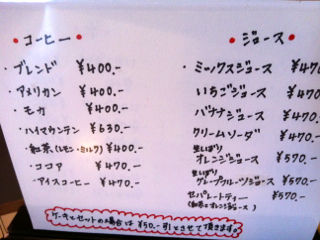 コーヒー
・ブレンド ¥400.-
・アメリカン ¥400.-
・モカ ¥400.-
・ハイマウンテン ¥630.-
・紅茶(レモン・ミルク) ¥400.-
・ココア ¥470.-
・アイスコーヒー ¥470.-
ジュース
・ミックスジュース ¥470
いちごジュース ¥470
バナナジュース ¥470
クリームソーダ ¥470
生しぼり
オレンジジュース ¥570.-
生しぼり
グレープフルーツジュース ¥570.-
セパレートティー ¥570.-
(紅茶とオレンジジュース)
ケーキとセットの場合は¥50.-引とさせて頂きます。